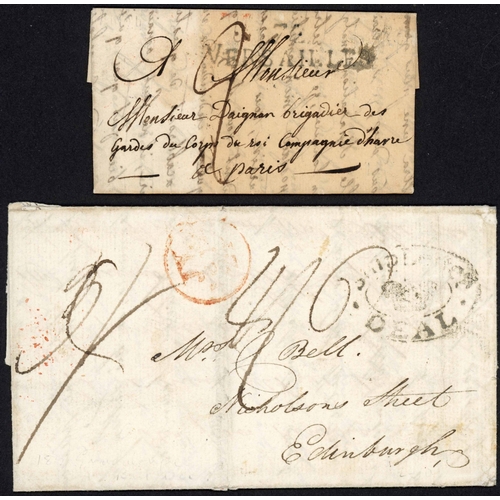 VERSAILLES
A Monsieur
Monsieur Daignan brigadier des
Gardes du Corps du roi Compagnie d'havré
a paris
SHIP LETTER
DEAL
Mrs Bell.
Nicholsons Street
Edinburgh